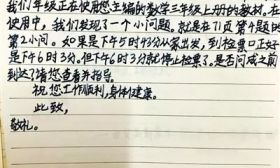 我们年级正在使用您主编的数学三年级上册的教材。在
使用中，我们发现了一个小问题。就是在71页第4题的
第2小问。如果是下午5时43分从家出发，到检票口正好
是下午6时3分。但下午6时3分就停止检票了。是否问成之前
到达？请您查看并指导。
祝您工作顺利，身体健康。
此致，
敬礼。